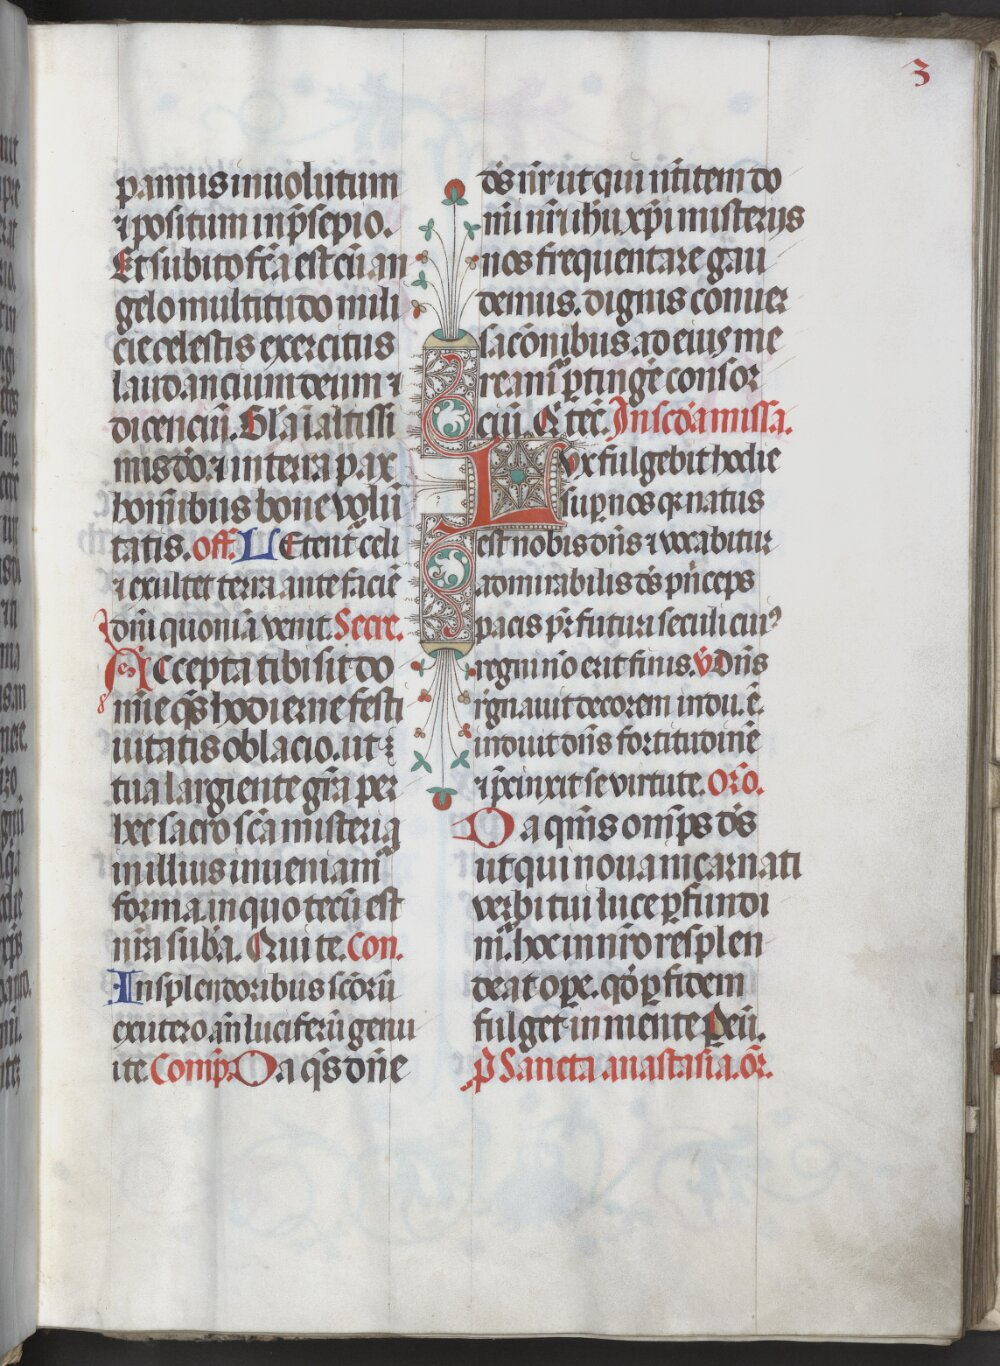 3
pannis inuolutum
⁊ positum in p̄sepio.
Et subito fc̄a est cū an
gelo multitudo mili
cie celestis exercitus
laudancium deum ⁊
dicenciū. Gl̄a ī altissi
mis do. ⁊ in terra pax
hoīnibus bone volū
tatis. off. Letent᷑ celi
⁊ exultet terra ante faciē
dn̄i quoniā venit. Secre.
Accepta tibi sit do
mīe qs̄ hodierne festi
uitatis oblacio. ut
tua largiente gr̄a per
hec sacro sc̄a misteria
in illius inueniam᷑
forma. in quo tecū est
nr̄a sub̄a. Qui te. Con.
In splendoribus sc̄orū
ex utero an̄ luciferū genui
te. Comp̄. Da qs̄ dn̄e
ds̄ nr̄ ut qui n̄titem do
m̄i nr̄i ih̄u xp̄i misterijs
nos frequentare gau
demus. dignis conuer
sac̄onibus. ad eius me
ream᷑ ꝑtinge᷑ consor
ciū. Q tec̄. In scd̄a missa.
Lux fulgebit hodie
sup̄ nos q᷑ natus
est nobis dn̄s ⁊ vocabitur
admirabilis ds̄ pn̄ceps
pacis pr̄ futuri seculi cui᷒
regni nō erit finis. v̄ Dn̄s
rḡnauit decorem indu. ē.
induit dn̄s fortitudinē
⁊ p̄cinxit se virtute. Oro.
Da qm̄s om̄ps ds̄
ut qui noua incarnati
verbi tui luce ꝑfundi
m᷑. hoc in nr̄o resplen
deat oꝑe. qd̄ ꝑ fidem
fulget in mente. Peū.
ꝓ Sancta anastasia. or̄.